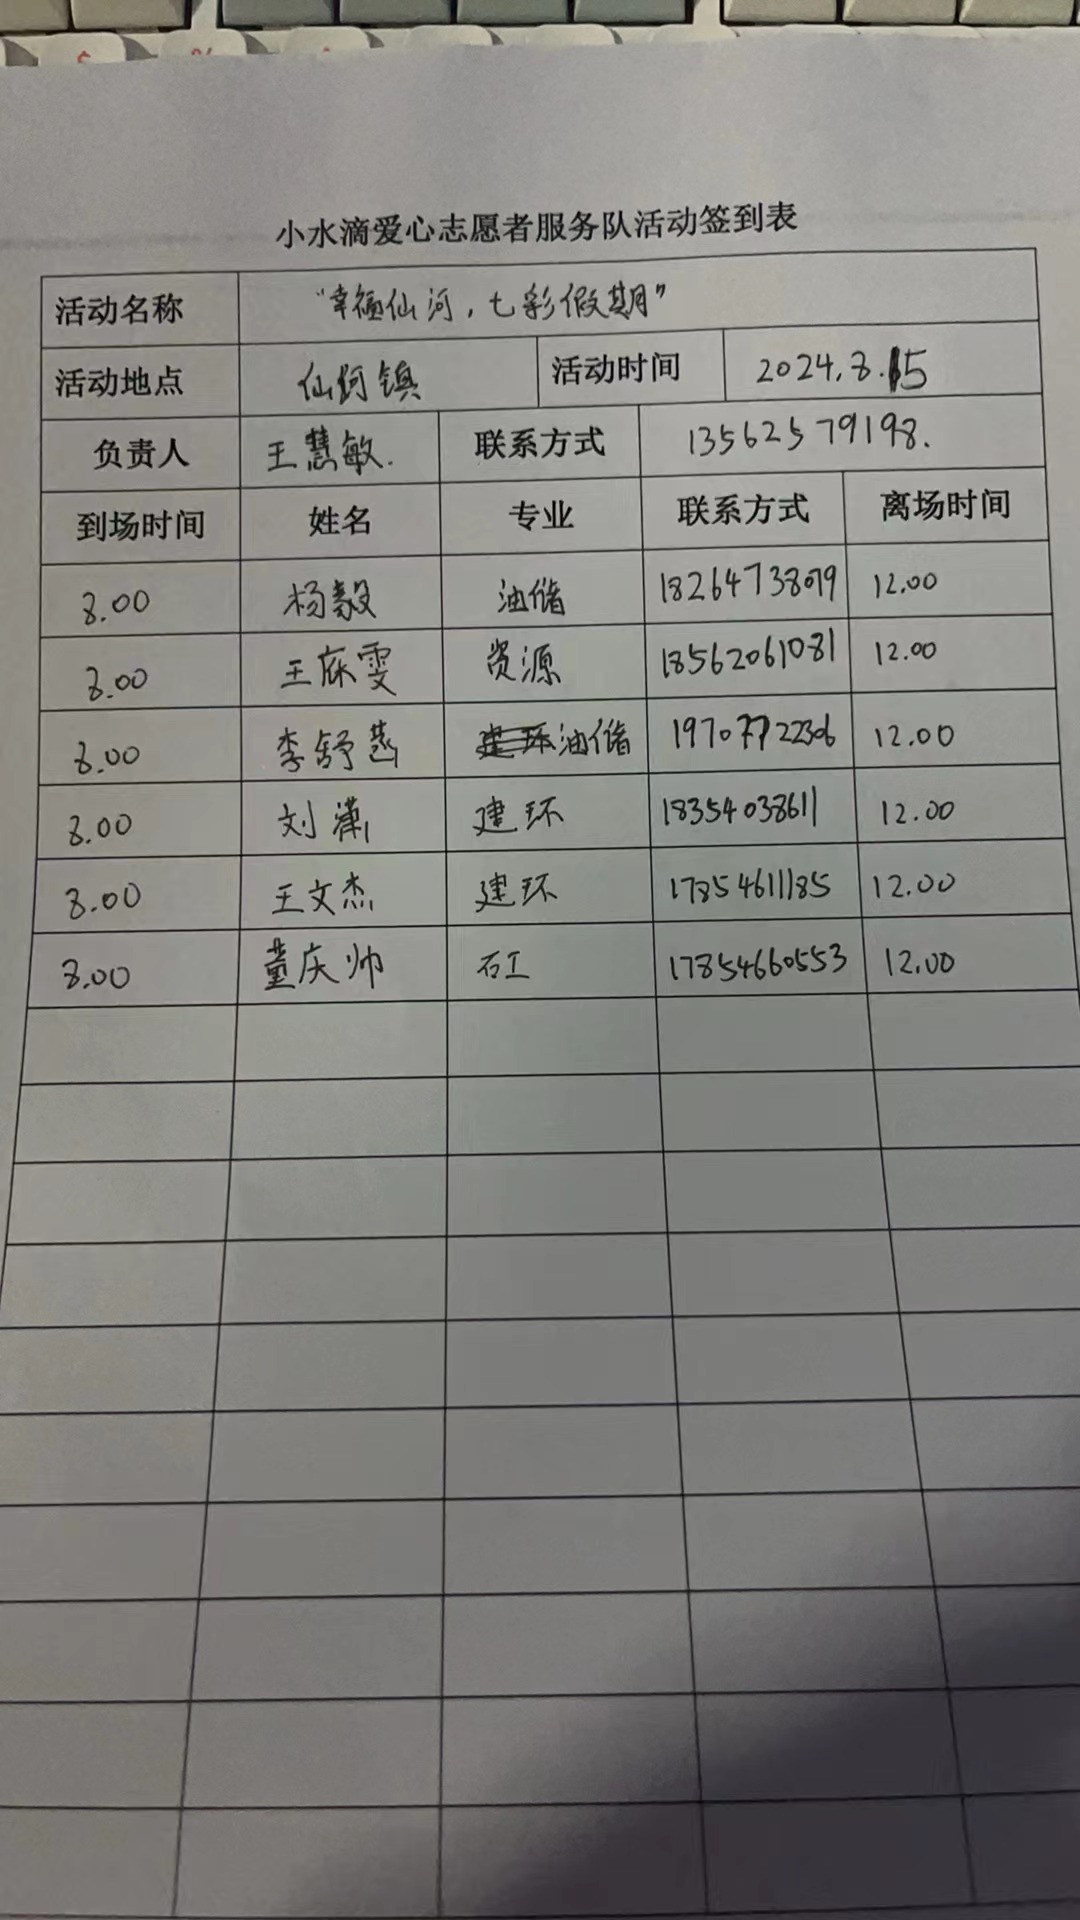 小水滴爱心志愿者服务队活动签到表
活动名称 "幸福仙河，七彩假期"
活动地点 仙河镇 活动时间 2024.8.15
负责人 王慧敏. 联系方式 13562579198.
到场时间 姓名 专业 联系方式 离场时间
8.00 杨毅 油储 18264738079 12.00
8.00 王庥雯 资源 18562061081 12.00
8.00 李舒菡 油储 19707722306 12.00
8.00 刘潇 建环 18354038611 12.00
8.00 王文杰 建环 17854611185 12.00
8.00 董庆帅 石工 17854660553 12.00